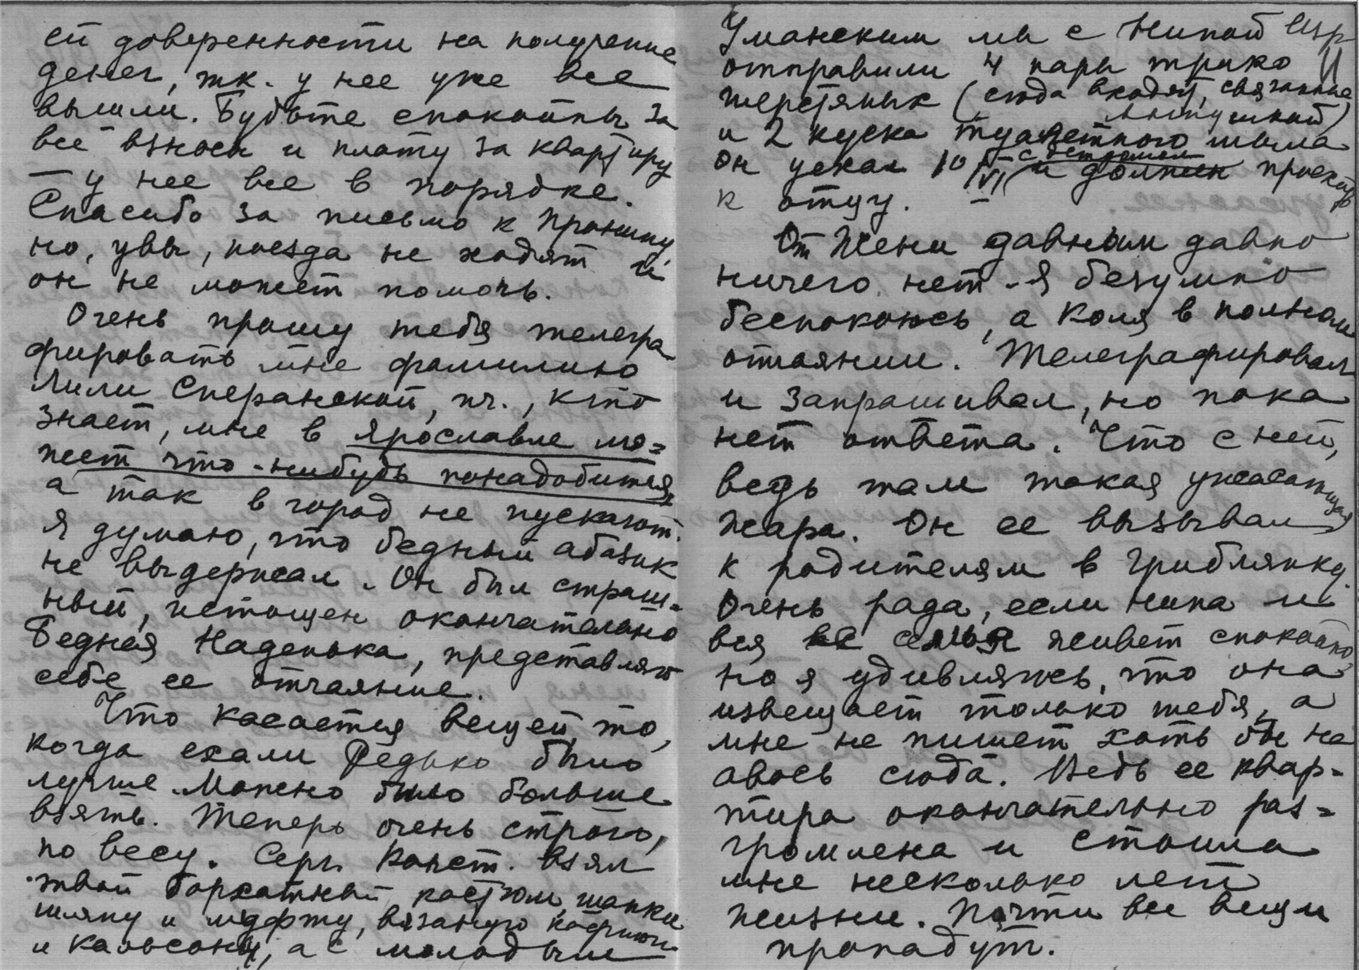 ей доверенности на получение
денег, т.к. у нее уже все
вышли. Будьте спокойны за
все взносы и плату за квартиру
– у нее все в порядке.
Спасибо за письмо к Пронину,
но, увы, поезда не ходят и
он не может помочь.
Очень прошу тебя телегра
фировать мне фамилию
Лили Сперанской, п.ч., кто
знает, мне в Ярославле мо=
жет что-нибудь понадобиться,
а так в город не пускают.
Я думаю, что бедный абазик
не выдержал. Он был страш=
ный, истощен окончательно
Бедная Наденька, представляю
себе ее отчаяние.
Что касается вещей то,
когда ехали Редько было
лучше. Можно было больше
взять. Теперь очень строго,
по весу. Серг. Конст. взял
твой бархатный костюм шапки
шляпу и муфту, вязаную кофточку
и кальсоны, а с молодым
Уманским мы с Ниной
отправили 4 пары трико
шерстяных (сюда входят, связанные
и 2 куска туалетного мыла
он уехал 10/VI с и должен проехать
к отцу.
От Жени давным давно
ничего нет. Я безумно
беспокоюсь, а Коля в полном
отчаянии. Телеграфировал
и запрашивал, но пока
нет ответа. Что с ней,
ведь там такая ужасающая
жара. Он ее вызывал
к родителям в Гриблянку.
Очень рада, если Нина и
вся семья живет спокойно,
но я удивляюсь, что она
извещает только тебя, а
мне не пишет хоть бы на
авось сюда. Ведь ее квар=
тира окончательно раз=
громлена и стоила
мне несколько лет
жизни. Почти все вещи
пропадут.